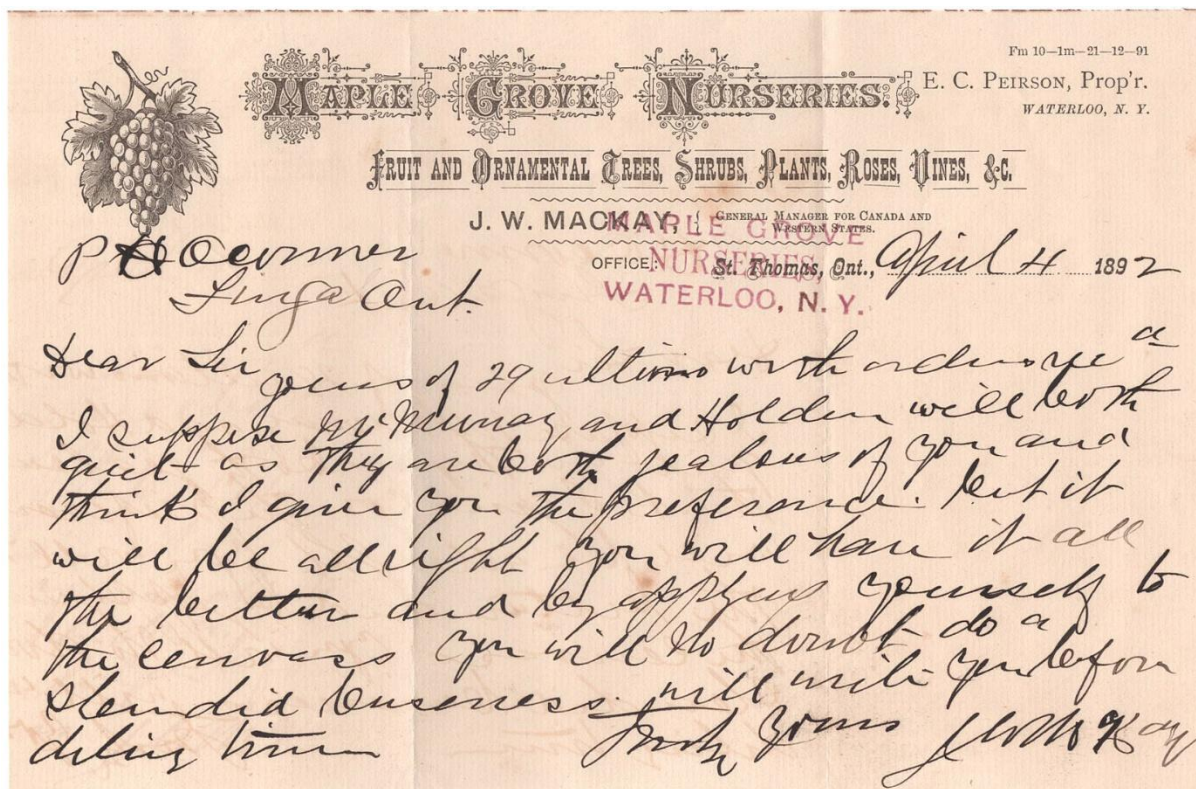 Fm 10—1m—21—12—91
MAPLE GROVE NURSERIES.
E. C. PEIRSON, Prop'r.
WATERLOO, N. Y.
FRUIT AND ORNAMENTAL TREES, SHRUBS, PLANTS, ROSES, VINES, &C.
J. W. MACKAY, { GENERAL MANAGER FOR CANADA AND
WESTERN STATES.
MAPLE GROVE
NURSERIES,
WATERLOO, N. Y.
OFFICE: St. Thomas, Ont., April 4 1892
P O Connor
Ont.
Dear Sir
yours of 29 ultimo with orders
I suppose McMurray and Holden will both
quit as they are both jealous of you and
think I give you the preference. but it
will be all right you will have it all
the better and by applying yourself to
the canvass you will no doubt do a
splendid buseness. will write you before
time Truly Yours J W McKay